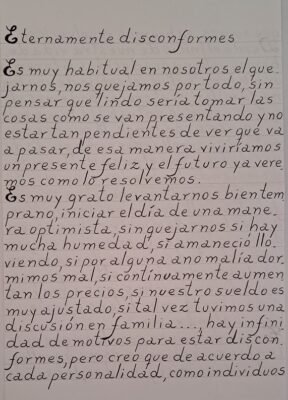 Eternamente disconformes
Es muy habitual en nosotros el que
jarnos, nos quejamos por todo, sin
pensar que lindo sería tomar las
cosas como se van presentando y no
estar tan pendientes de ver qué va
a pasar, de esa manera viviríamos
un presente feliz y el futuro ya vere
mos como lo resolvemos.
Es muy grato levantarnos bien tem
prano, iniciar el día de una mane
ra optimista, sin quejarnos si hay
mucha humedad, si amaneció llo
viendo, si por alguna anomalía dor
mimos mal, si contínuamente aumen
tan los precios, si nuestro sueldo es
muy ajustado, si tal vez tuvimos una
discusión en familia..., hay infini
dad de motivos para estar discon
formes, pero creo que de acuerdo a
cada personalidad, como individuos